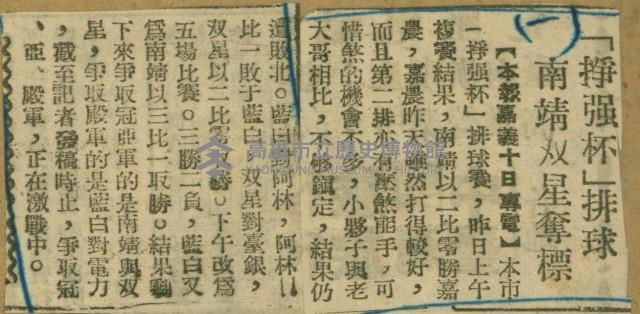 「掙强杯」排球
南靖双星奪標
(一)
【本報嘉義十日專電】本市
「掙强杯」排球賽，昨日上午
複賽結果，南靖以二比零勝嘉
農，嘉農昨天雖然打得較好，
而且第二排亦有壓煞能手，可
惜煞的機會不多，小夥子與老
大哥相比，不够鎮定，結果仍
遭敗北。藍白對阿林，阿林
比一敗于藍白，双星對臺銀，
双星以二比零取勝。下午改爲
五場比賽。三勝一負，藍白又
爲南靖以三比一取勝。結果剩
下來爭取冠亞軍的是南靖與双
星，爭取殿軍的是藍白對電力
，截至記者發稿時止，爭取冠
、亞、殿軍，正在激戰中。
高雄市立歷史博物館